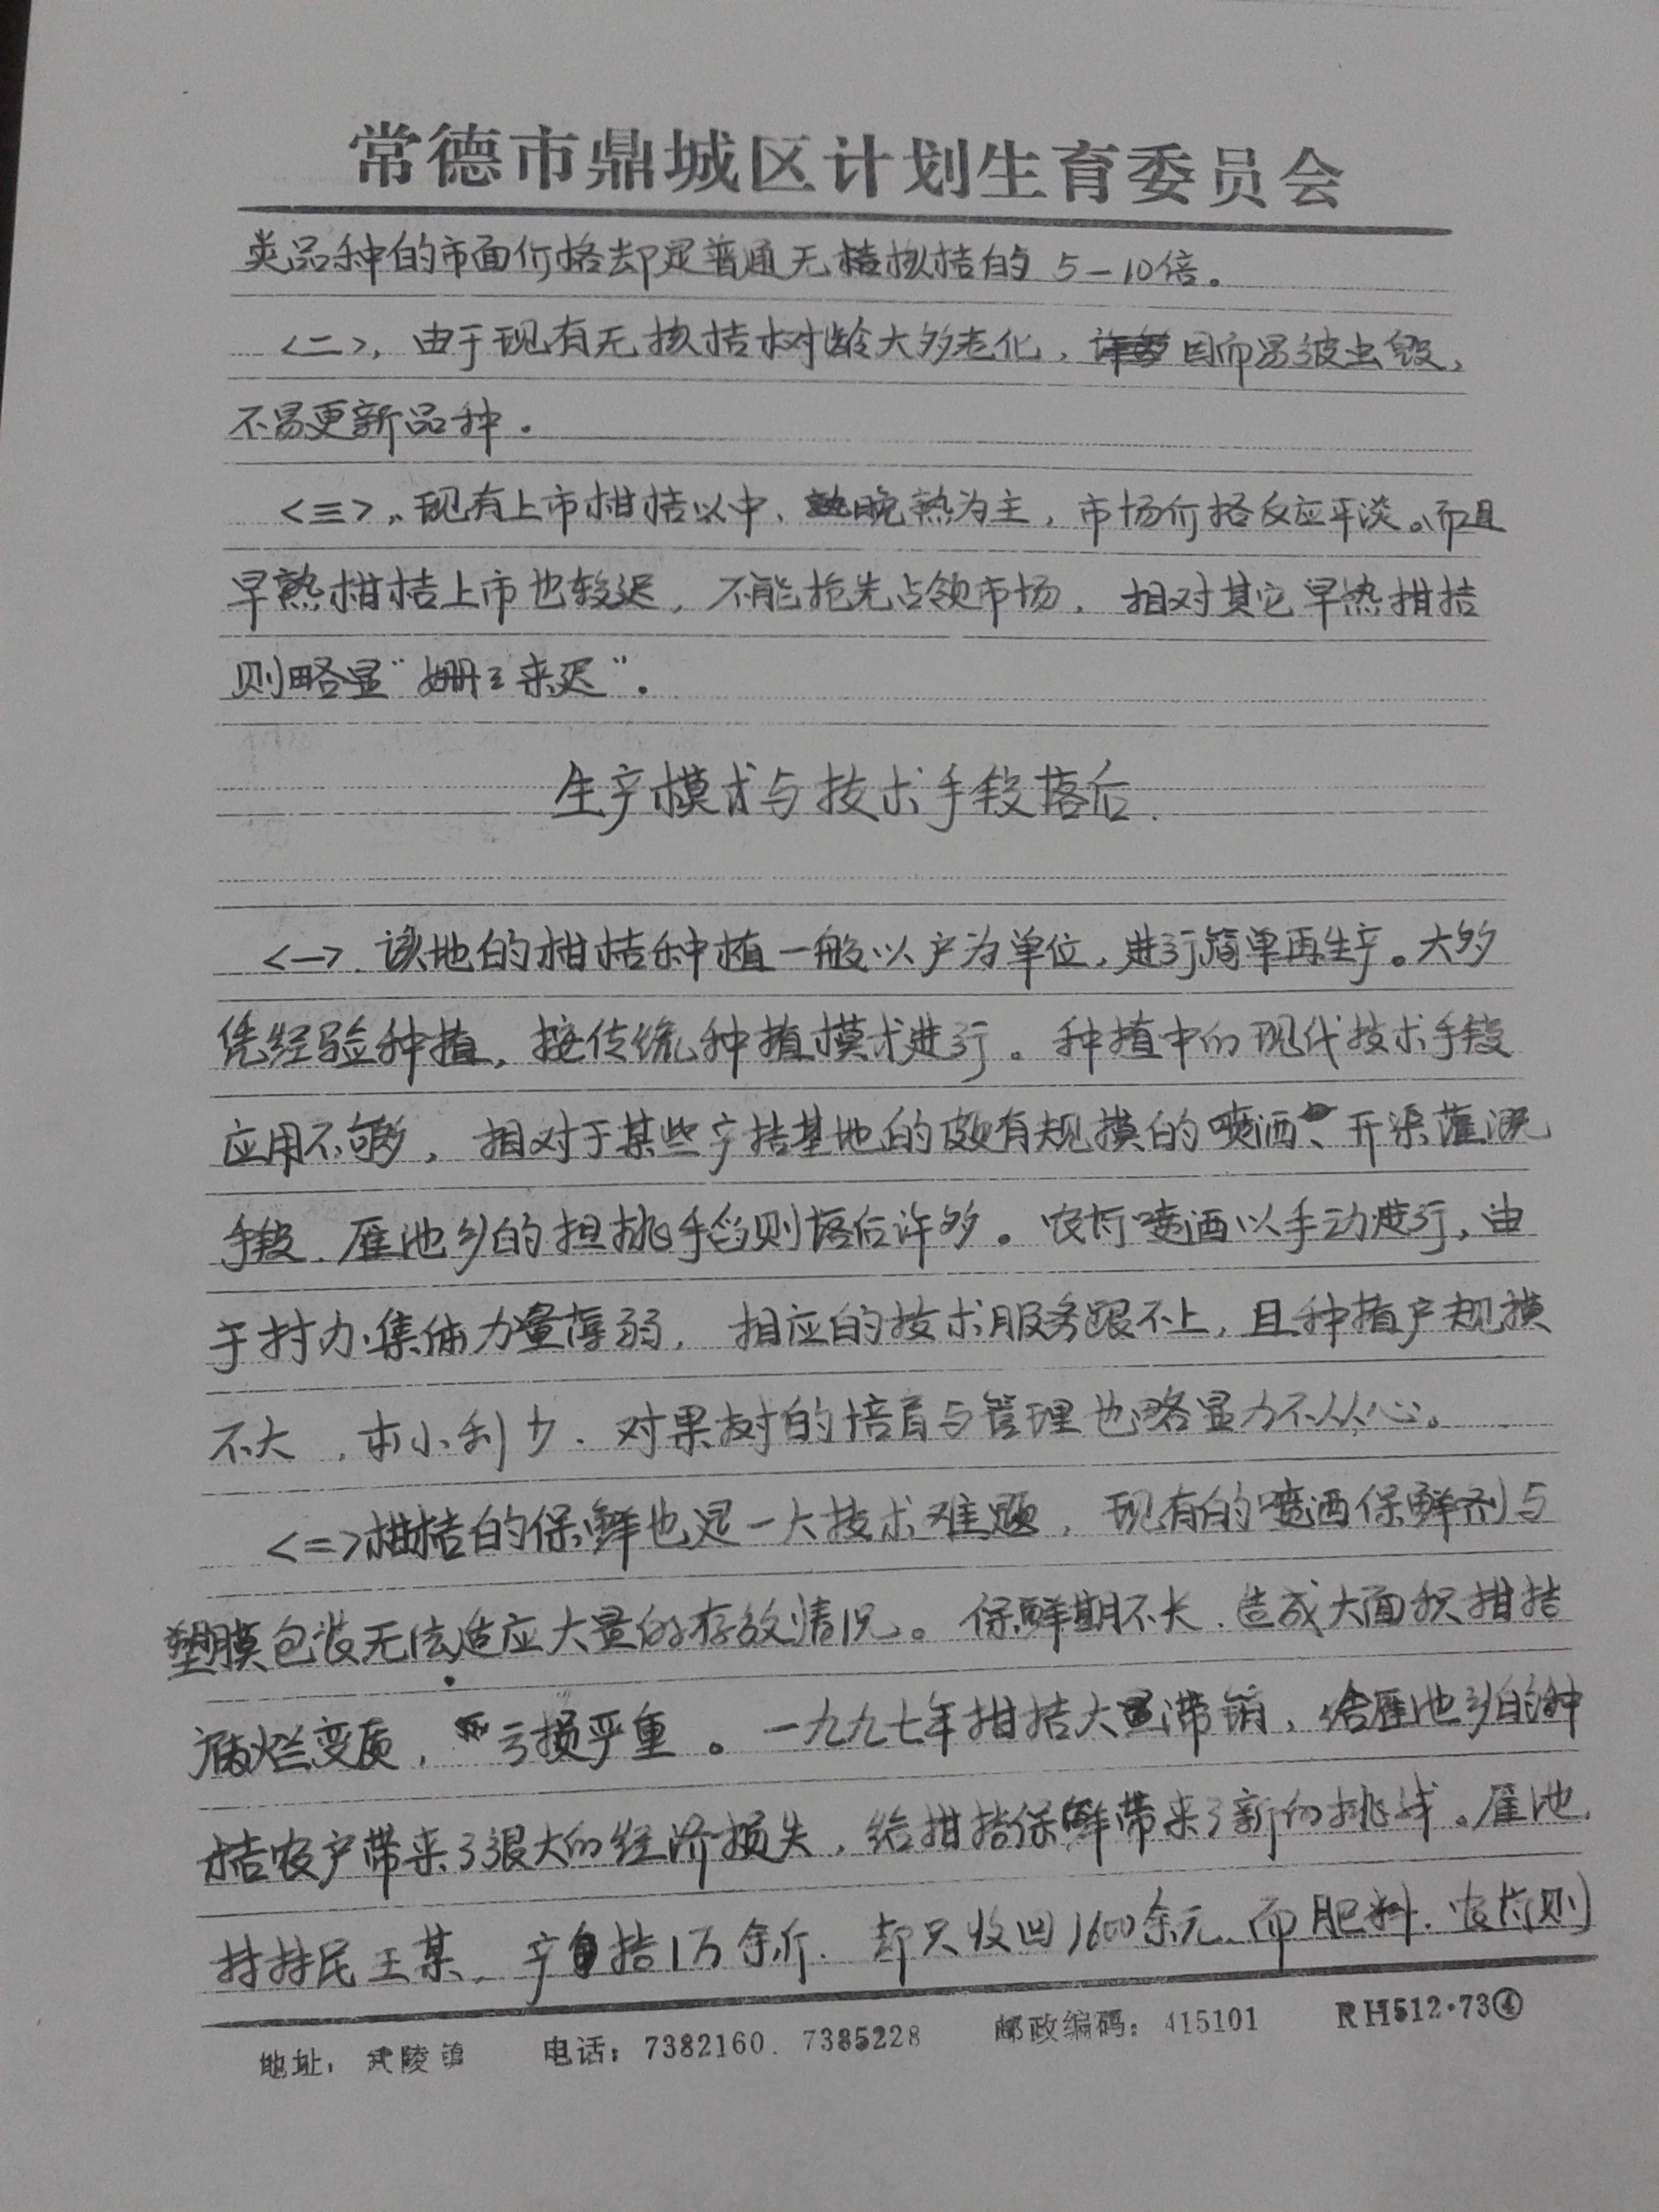 常德市鼎城区计划生育委员会
类品种的市面价格却是普通无核桔的5—10倍。
<二>，由于现有无核桔树龄大多老化，因而易被虫毁，
不易更新品种．
<三>、现有上市柑桔以中、晚熟为主，市场价格反应平淡。而且
早熟柑桔上市也较迟，不能抢先占领市场，相对其它早熟柑桔
则略显“姗〻来迟”．
生产模式与技术手段落后．
<一>．该地的柑桔种植一般以户为单位，进行简单再生产。大多
凭经验种植，按传统种植模式进行。种植中的现代技术手段
应用不够，相对于某些产桔基地的颇有规模的喷洒、开渠灌溉
手段．雁池乡的担挑手舀则落后许多。农药喷洒以手动进行，由
于村办集体力量薄弱，相应的技术服务跟不上，且种植户规模
不大，本小利少．对果树的培育与管理也略显力不从心。
<二>柑桔的保鲜也是一大技术难题，现有的喷洒保鲜剂与
塑膜包装无法适应大量的存放情况。保鲜期不长．造成大面积柑桔
腐烂变质，亏损严重。一九九七年柑桔大量滞销，给雁池乡的种
桔农户带来了很大的经济损失，给柑桔保鲜带来了新的挑战。雁池
村村民王某，产桔1万余斤．却只收回1600余元．而肥料．农药则
地址：武陵镇 电话：7382160．7385228 邮政编码：415101 RH512·73④